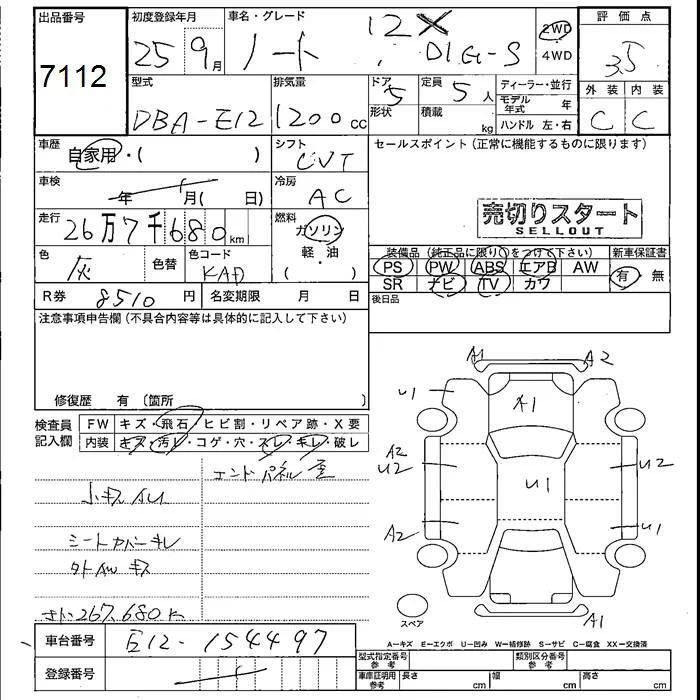 出品番号 初度登録年月 車名・グレード 評価点
7112 25 9月 ノート 12X DIG-S 2WD・4WD 3.5
型式 排気量 ドア 定員 ディーラー・並行 外装 内装
DBA-E12 1200cc 5 5人 モデル年式 年 C C
形状 積載 kg ハンドル 左・右
車歴 自家用・( ) シフト CVT セールスポイント (正常に機能するものに限ります)
車検 年 月( 日) 冷房 AC
売切りスタート
SELLOUT
走行 26万7千680km 燃料 ガソリン・軽・油
装備品 (純正品に限り○をつけて下さい) 新車保証書
色 灰 色替 色コード KAD
PS PW ABS エアB AW 有・無
SR ナビ TV カワ
R券 8510円 名変期限 月 日 後日品
注意事項申告欄 (不具合内容等は具体的に記入して下さい)
修復歴 有 〔箇所
検査員記入欄 FW キズ・飛石・ヒビ割・リペア跡・X要
内装 キズ・汚レ・コゲ・穴・スレ・キレ・破レ
エンドパネル
小キズAU
シートカバーキレ
外AWキズ
267,680K
A1 A2
U1 A1
A2
U2 U1 U2
A2 U1
A1
スペア
A-キズ E-エクボ U-凹み W-補修跡 S-サビ C-腐食 XX-交換済
車台番号 E12-154497
登録番号
型式指定番号 参考 類別区分番号 参考
車庫証明用 参考 長さ cm 幅 cm 高さ cm